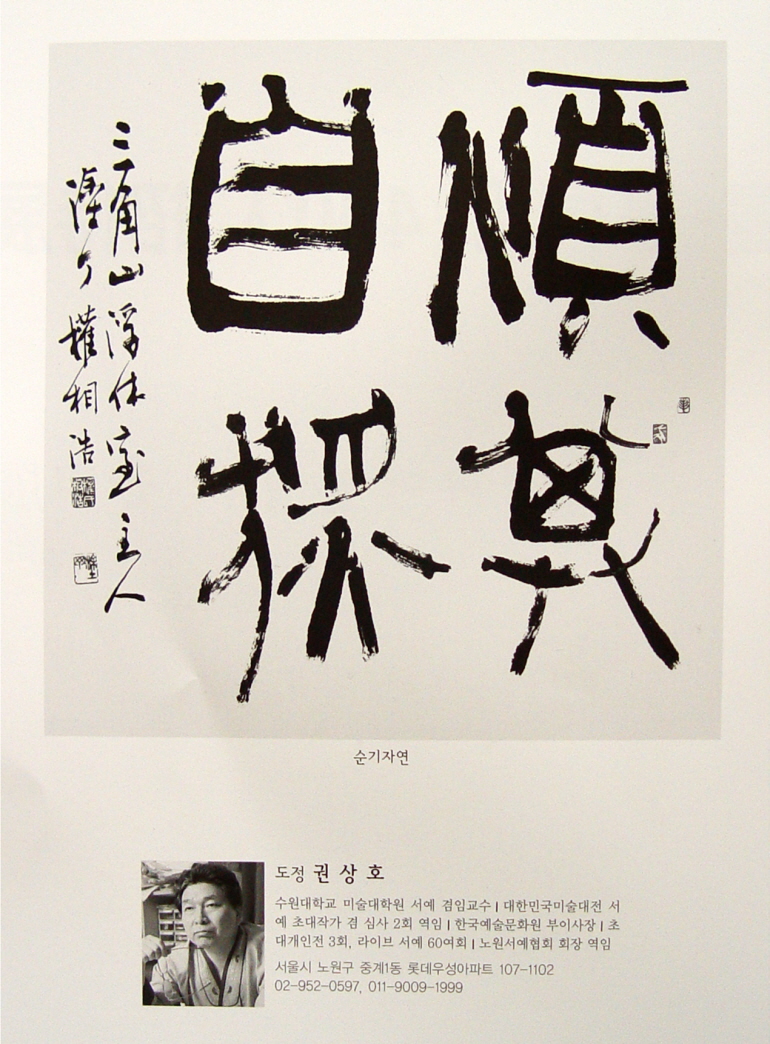 順其
自然
三角山浮休室主人
塗丁 權相浩
순기자연
도정 권상호
수원대학교 미술대학원 서예 겸임교수 | 대한민국미술대전 서
예 초대작가 겸 심사 2회 역임 | 한국예술문화원 부이사장 | 초
대개인전 3회, 라이브 서예 60여회 | 노원서예협회 회장 역임
서울시 노원구 중계1동 롯데우성아파트 107-1102
02-952-0597, 011-9009-1999